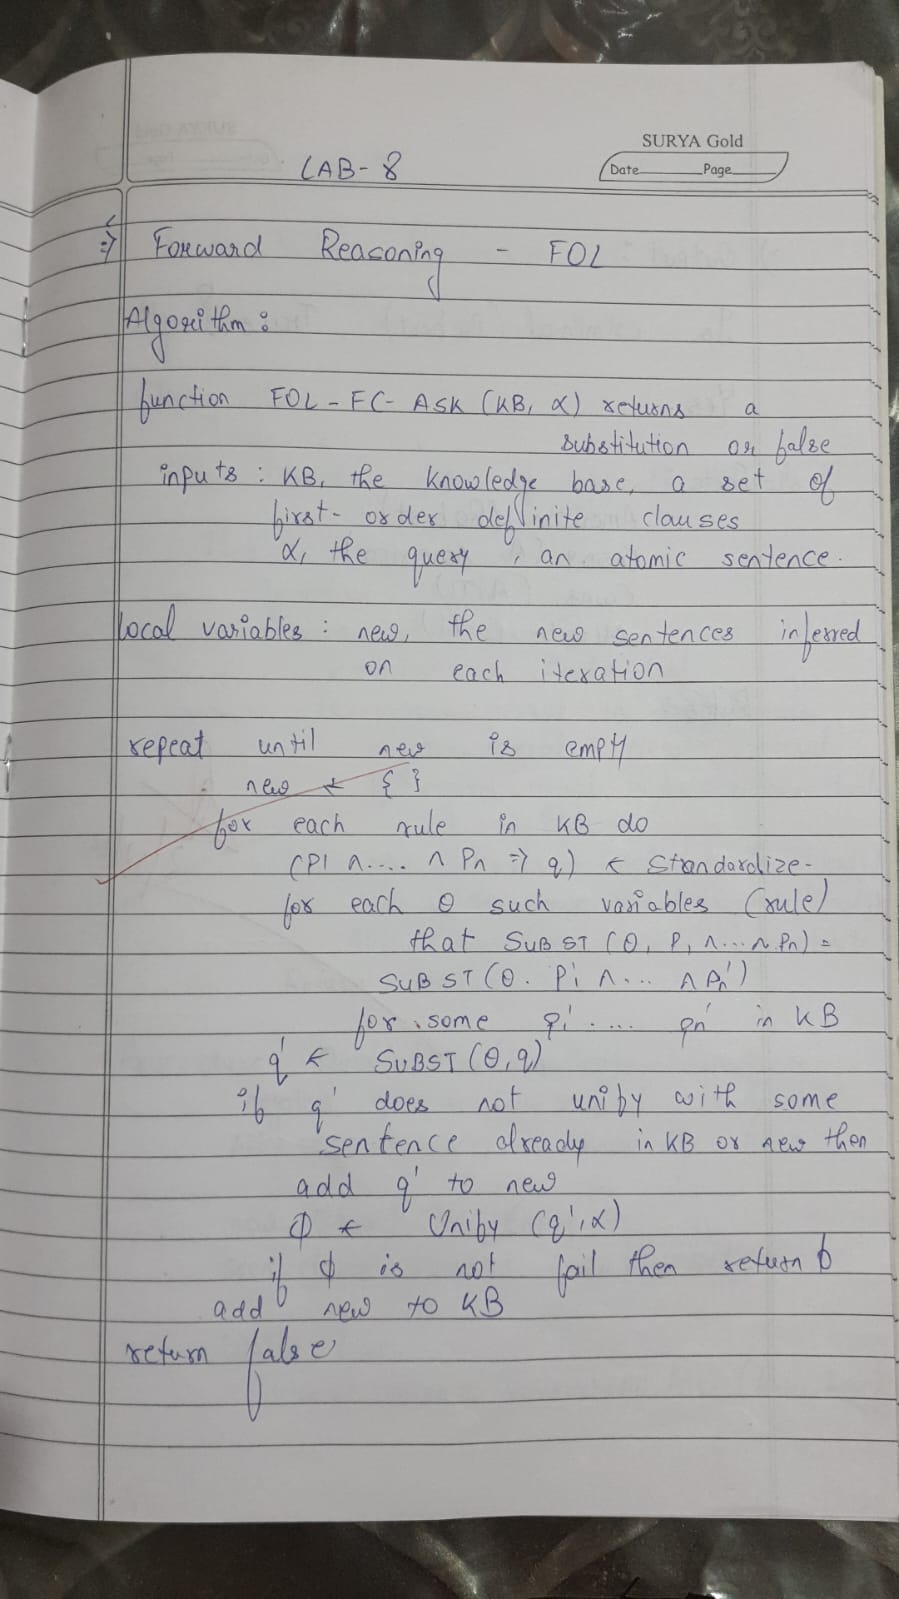 SURYA Gold
LAB-8
Date Page
=> Forward Reasoning - FOL
Algorithm:
function FOL-FC-ASK (KB, α) returns a
substitution or false
inputs: KB, the knowledge base, a set of
first-order definite clauses
α, the query, an atomic sentence.
local variables: new, the new sentences inferred
on each iteration
repeat until new is empty
new ← { }
for each rule in KB do
(P1 ∧.... ∧ Pn => q) ← Standardize-
for each θ such variables (rule)
that SUBST (θ, P1 ∧...∧ Pn) =
SUBST (θ. P1' ∧... ∧ Pn')
for some p1' .... pn' in KB
q' ← SUBST (θ, q)
if q' does not unify with some
sentence already in KB or new then
add q' to new
ϕ ← Unify (q', α)
if ϕ is not fail then return ϕ
add new to KB
return false